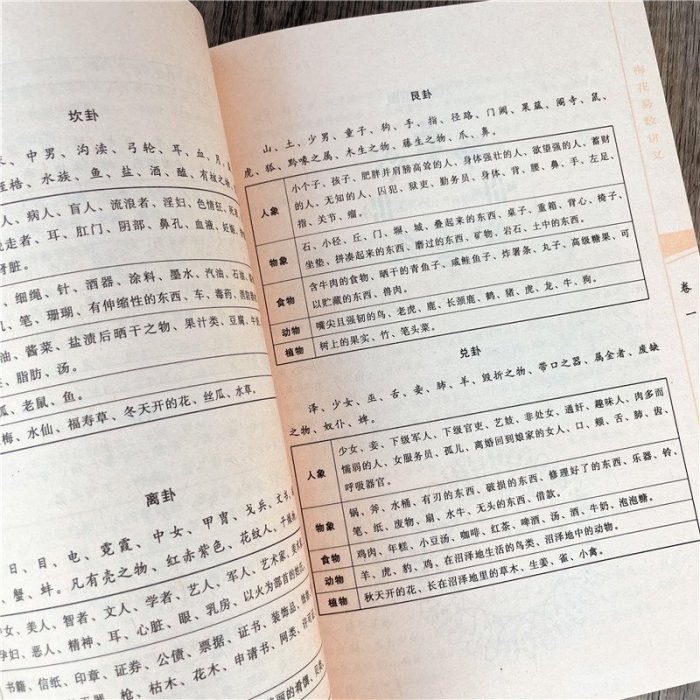 坎卦
、中男、沟渎、弓轮、耳、血、月、
桎梏、水族、鱼、盐、酒、醢、有核之物、
人、病人、盲人、流浪者、淫妇、色情狂、
逃走者、耳、肛门、阴部、鼻孔、血液、妊娠、
肾脏。
、细绳、针、酒器、涂料、墨水、汽油、石油、
、笔、珊瑚、有伸缩性的东西、车、毒药、消防
油、酱菜、盐渍后晒干之物、果汁类、豆腐、牛
、脂肪、汤。
狐、老鼠、鱼。
梅、水仙、福寿草、冬天开的花、丝瓜、水草。
离卦
日、目、电、霓霞、中女、甲胄、戈兵、文书、
、蟹、蚌。凡有壳之物、红赤紫色、花纹人、干燥
中女、美人、智者、文人、学者、艺人、军人、艺术家、
孕妇、恶人、精神、耳、心脏、眼、乳房、以火为部首的姓氏。
书籍、信纸、印章、证券、公债、票据、证书、装饰品、
、枪、枯木、花木、申请书、同类、许可
艮卦
山、土、少男、童子、狗、手、指、径路、门阙、果蓏、阍寺、鼠、
虎、狐、黔喙之属、木生之物、藤生之物、爪、鼻。
人象
小个子、孩子、肥胖并肩膀高耸的人、身体强壮的人、欲望强的人、蓄财
的人、无知的人、囚犯、狱吏、勤务员、身体、背、腰、鼻、手、左足、
指、关节、瘤。
物象
石、小径、丘、门、塀、城、叠起来的东西、桌子、重箱、背心、椅子、
坐垫、拼凑起来的东西、磨过的东西、矿物、岩石、土中的东西。
食物
含牛肉的食物、晒干的青鱼子、咸鲑鱼子、炸薯条、丸子、高级糖果、可
以贮藏的东西、兽肉。
动物
嘴尖且强韧的鸟、老虎、鹿、长颈鹿、鹤、猪、虎、龙、牛、狗。
植物
树上的果实、竹、笔头菜。
兑卦
泽、少女、巫、舌、妾、肺、羊、毁折之物、带口之器、属金者、废缺
之物、奴仆、婢。
人象
少女、妾、下级军人、下级官吏、艺妓、非处女、通奸、趣味人、肉多而
懦弱的人、女服务员、孤儿、离婚回到娘家的女人、口、颊、舌、肺、齿、
呼吸器官。
物象
锅、斧、水桶、有刃的东西、破损的东西、修理好了的东西、乐器、铃、
笔、纸、废物、扇、水牛、无头的东西、借款。
食物
鸡肉、年糕、小豆汤、咖啡、红茶、啤酒、汤、酒、牛奶、泡泡糖。
动物
羊、虎、豹、鸡、在沼泽地生活的鸟类、沼泽地中的动物。
植物
秋天开的花、长在沼泽地里的草木、生姜、雀、小禽。
梅花易数讲义
卷一